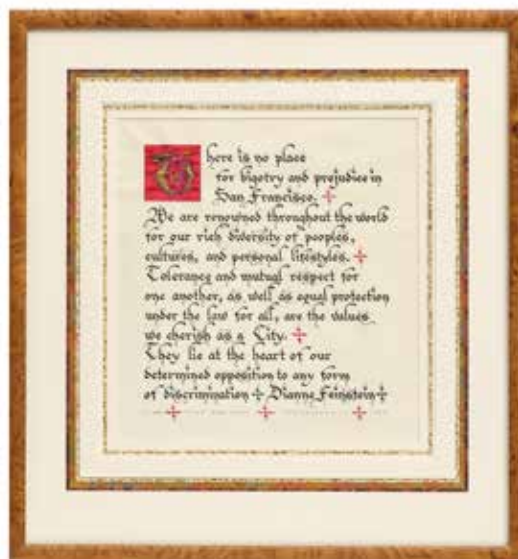 There is no place
for bigotry and prejudice in
San Francisco.
We are renowned throughout the world
for our rich diversity of peoples,
cultures, and personal lifestyles.
Tolerance and mutual respect for
one another, as well as equal protection
under the law for all, are the values
we cherish as a City.
They lie at the heart of our
determined opposition to any form
of discrimination Dianne Feinstein